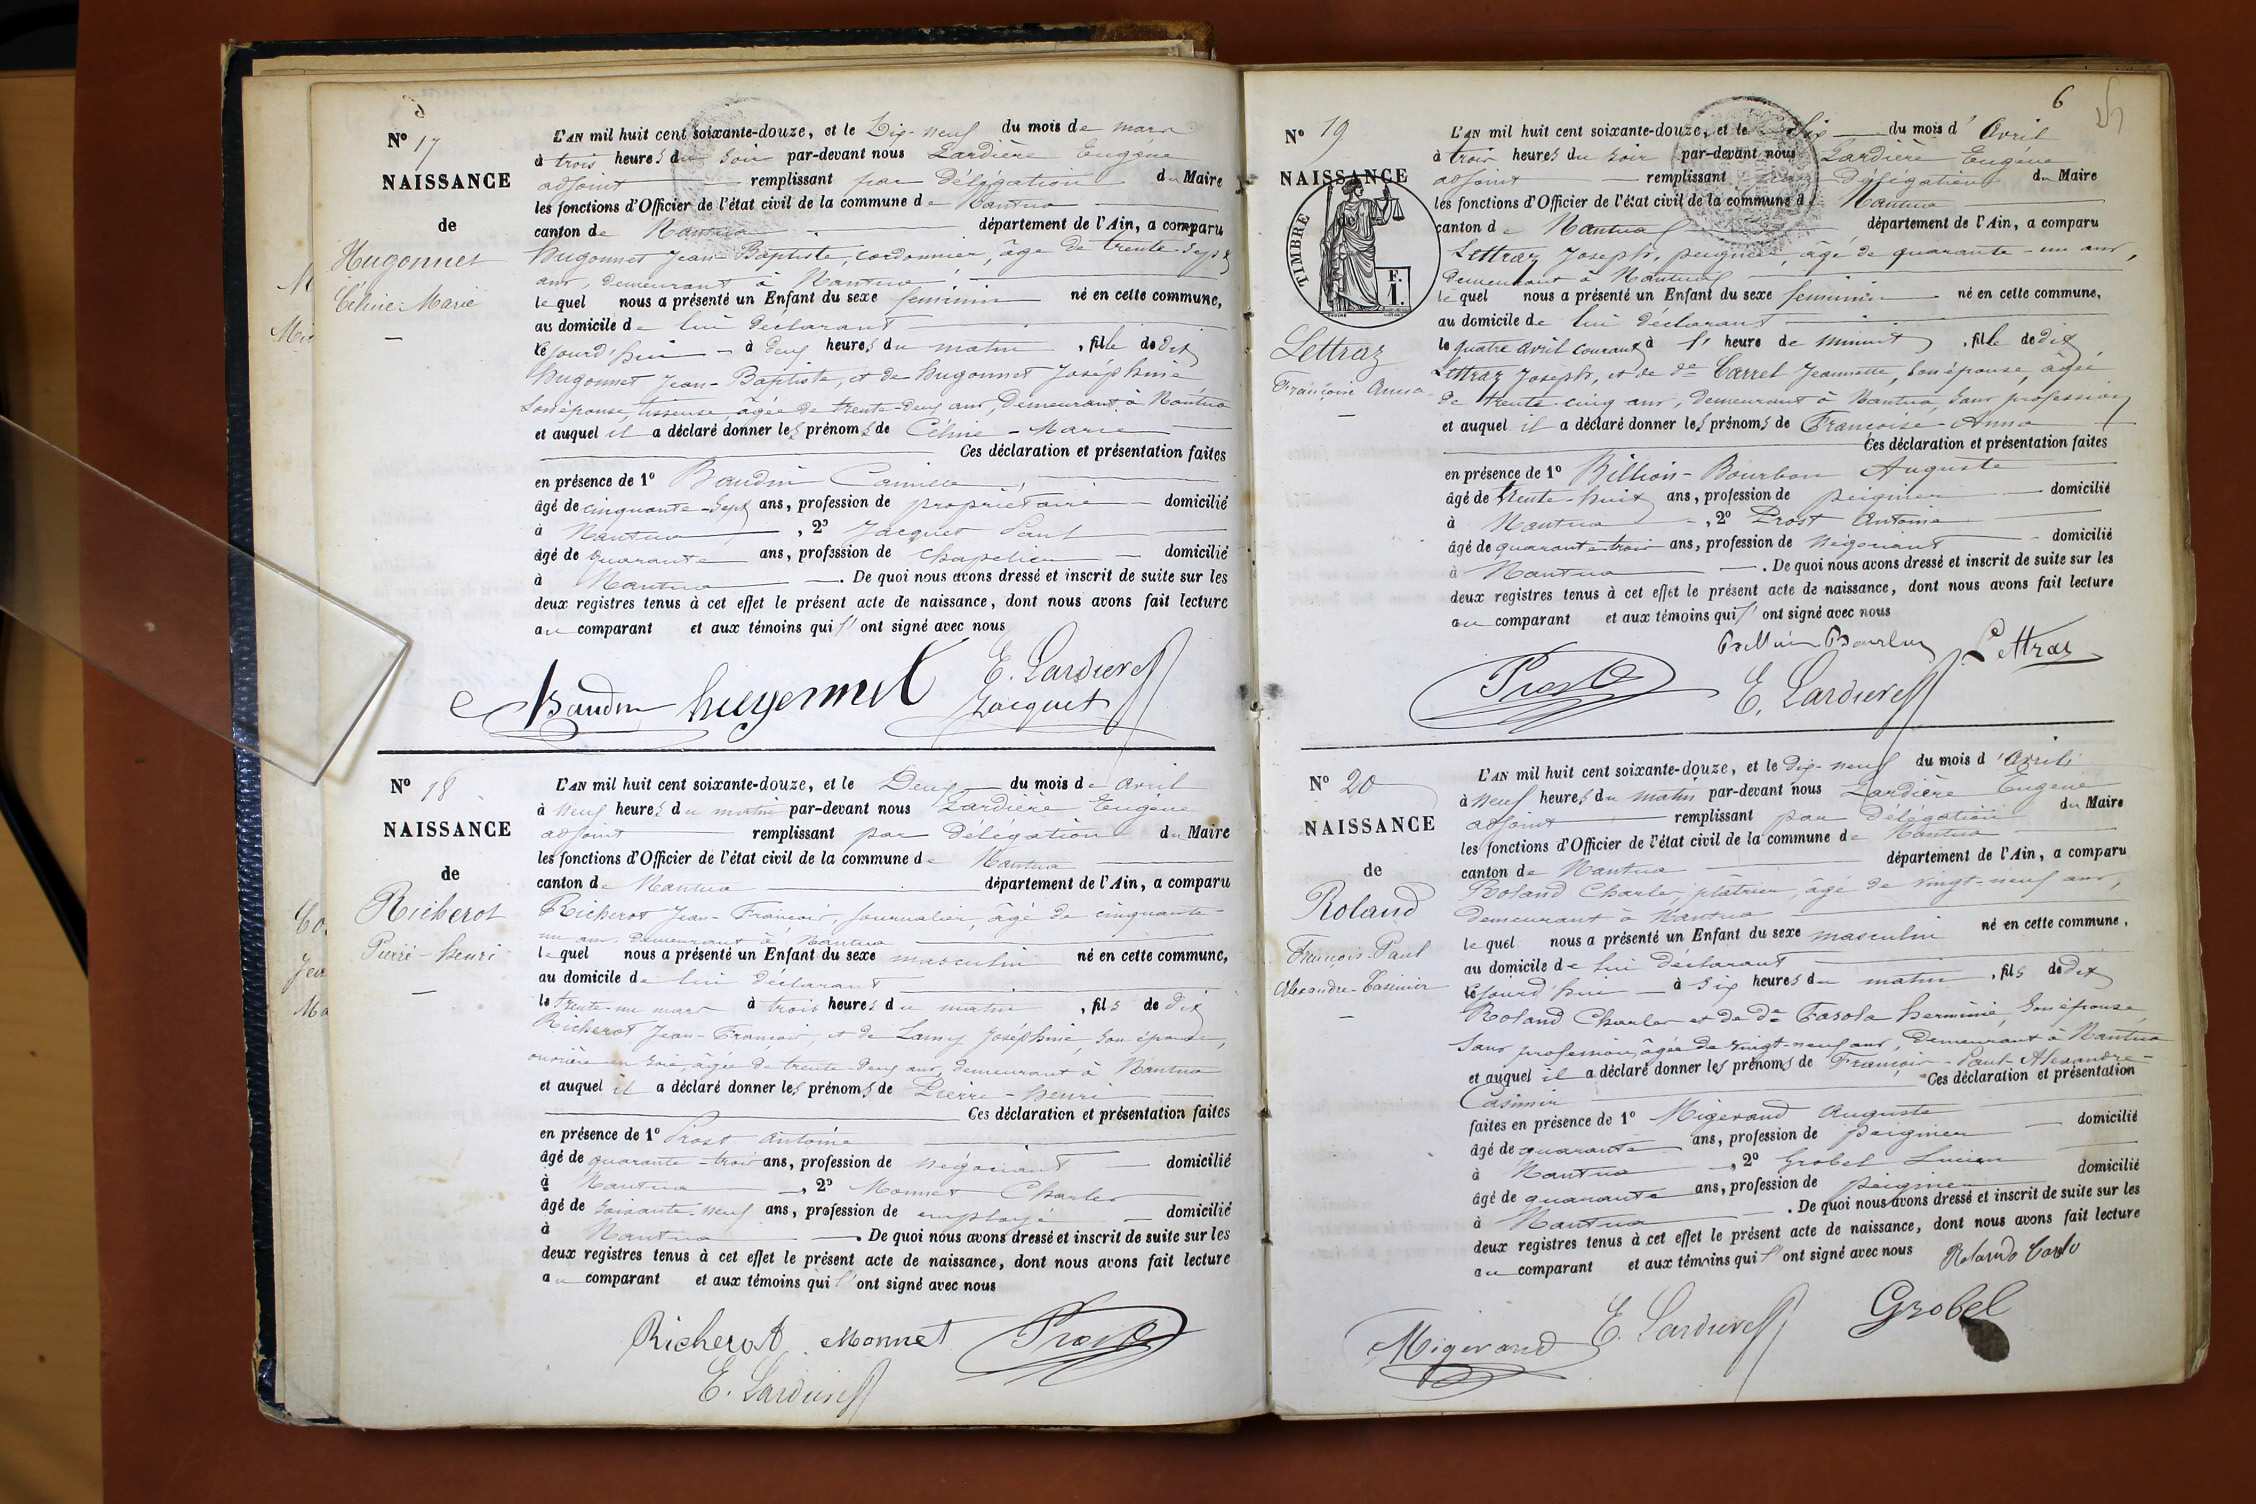 N° 17
NAISSANCE
de
Hugonnet
Céline-Marie
L'AN mil huit cent soixante-douze, et le Dix-neuf du mois de mars
à trois heures du soir par-devant nous Lardière Eugène
adjoint remplissant par délégation du Maire
les fonctions d'Officier de l'état civil de la commune de Nantua
canton de Nantua département de l'Ain, a comparu
hugonnet Jean-Baptiste, cordonnier, âgé de trente-sept
ans, demeurant à Nantua
lequel nous a présenté un Enfant du sexe féminin né en cette commune,
au domicile de lui déclarant
cejourd'hui à deux heures du matin, fille de dit
hugonnet Jean-Baptiste, et de hugonnet Joséphine
son épouse, tisseuse, âgée de trente-deux ans, demeurant à Nantua
et auquel il a déclaré donner les prénoms de Céline-Marie
Ces déclaration et présentation faites
en présence de 1° Baudin Camille,
âgé de cinquante-sept ans, profession de propriétaire domicilié
à Nantua, 2° Jacquet Paul
âgé de quarante ans, profession de Chapelier domicilié
à Nantua. De quoi nous avons dressé et inscrit de suite sur les
deux registres tenus à cet effet le présent acte de naissance, dont nous avons fait lecture
au comparant et aux témoins qui l' ont signé avec nous
E. Lardière
Baudin hugonnet Jacquet
N° 18
NAISSANCE
de
Richerot
Pierre-henri
L'AN mil huit cent soixante-douze, et le Deux du mois de avril
à neuf heures du matin par-devant nous Lardière Eugène
adjoint remplissant par délégation du Maire
les fonctions d'Officier de l'état civil de la commune de Nantua
canton de Nantua département de l'Ain, a comparu
Richerot Jean-François, journalier, âgé de cinquante-
un ans, demeurant à Nantua
lequel nous a présenté un Enfant du sexe masculin né en cette commune,
au domicile de lui déclarant
le trente-un mars à trois heures du matin, fils de dit
Richerot Jean-François, et de Lamy Joséphine, son épouse,
ouvrière en soie, âgée de trente-deux ans, demeurant à Nantua
et auquel il a déclaré donner les prénoms de Pierre-henri
Ces déclaration et présentation faites
en présence de 1° Prost Antoine
âgé de quarante-trois ans, profession de négociant domicilié
à Nantua, 2° Monnet Charles
âgé de soixante-neuf ans, profession de employé domicilié
à Nantua. De quoi nous avons dressé et inscrit de suite sur les
deux registres tenus à cet effet le présent acte de naissance, dont nous avons fait lecture
au comparant et aux témoins qui l' ont signé avec nous
Richerot Monnet Prost
E. Lardière
6
N° 19
NAISSANCE
de
TIMBRE
F.
1.
Lettraz
Françoise Anna
L'AN mil huit cent soixante-douze, et le Six du mois d'Avril
à trois heures du soir par-devant nous Lardière Eugène
adjoint remplissant par délégation du Maire
les fonctions d'Officier de l'état civil de la commune de Nantua
canton de Nantua département de l'Ain, a comparu
Lettraz Joseph, peignier, âgé de quarante-un ans,
demeurant à Nantua
lequel nous a présenté un Enfant du sexe féminin né en cette commune,
au domicile de lui déclarant
le quatre avril courant à l' heure de minuit, fille de dit
Lettraz Joseph, et de de Carret Jeannette, son épouse, âgée
de trente-cinq ans, demeurant à Nantua, sans profession
et auquel il a déclaré donner les prénoms de Françoise-Anna
Ces déclaration et présentation faites
en présence de 1° Billion-Bourbon Auguste
âgé de trente-huit ans, profession de peignier domicilié
à Nantua, 2° Prost Antoine
âgé de quarante-trois ans, profession de négociant domicilié
à Nantua. De quoi nous avons dressé et inscrit de suite sur les
deux registres tenus à cet effet le présent acte de naissance, dont nous avons fait lecture
au comparant et aux témoins qui l' ont signé avec nous
Billion Bourbon Lettraz
Prost E. Lardière
N° 20
NAISSANCE
de
Roland
François-Paul
Alexandre-Casimir
L'AN mil huit cent soixante-douze, et le dix-neuf du mois d'Avril
à neuf heures du matin par-devant nous Lardière Eugène
adjoint remplissant par délégation du Maire
les fonctions d'Officier de l'état civil de la commune de Nantua
canton de Nantua département de l'Ain, a comparu
Roland Charles, plâtrier, âgé de vingt-neuf ans,
demeurant à Nantua
lequel nous a présenté un Enfant du sexe masculin né en cette commune,
au domicile de lui déclarant
cejourd'hui à six heures du matin, fils de dit
Roland Charles et de de Fasola herminie, son épouse,
sans profession, âgée de vingt-neuf ans, demeurant à Nantua
et auquel il a déclaré donner les prénoms de François-Paul-Alexandre-
Casimir Ces déclaration et présentation
faites en présence de 1° Migerand Auguste
âgé de quarante ans, profession de peignier domicilié
à Nantua, 2° Grobel Lucien
âgé de quarante ans, profession de peignier domicilié
à Nantua. De quoi nous avons dressé et inscrit de suite sur les
deux registres tenus à cet effet le présent acte de naissance, dont nous avons fait lecture
au comparant et aux témoins qui l' ont signé avec nous Rolando Carlo
Migerand E. Lardière Grobel